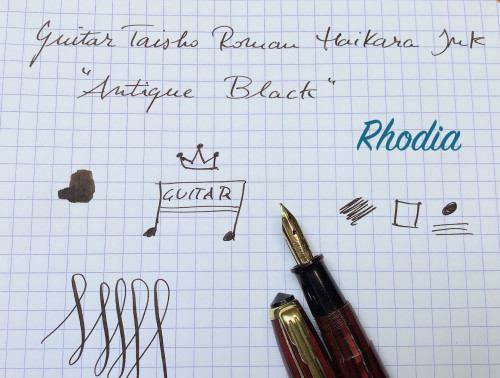 Guitar Taisho Roman Haikara Ink
"Antique Black"
Rhodia
GUITAR